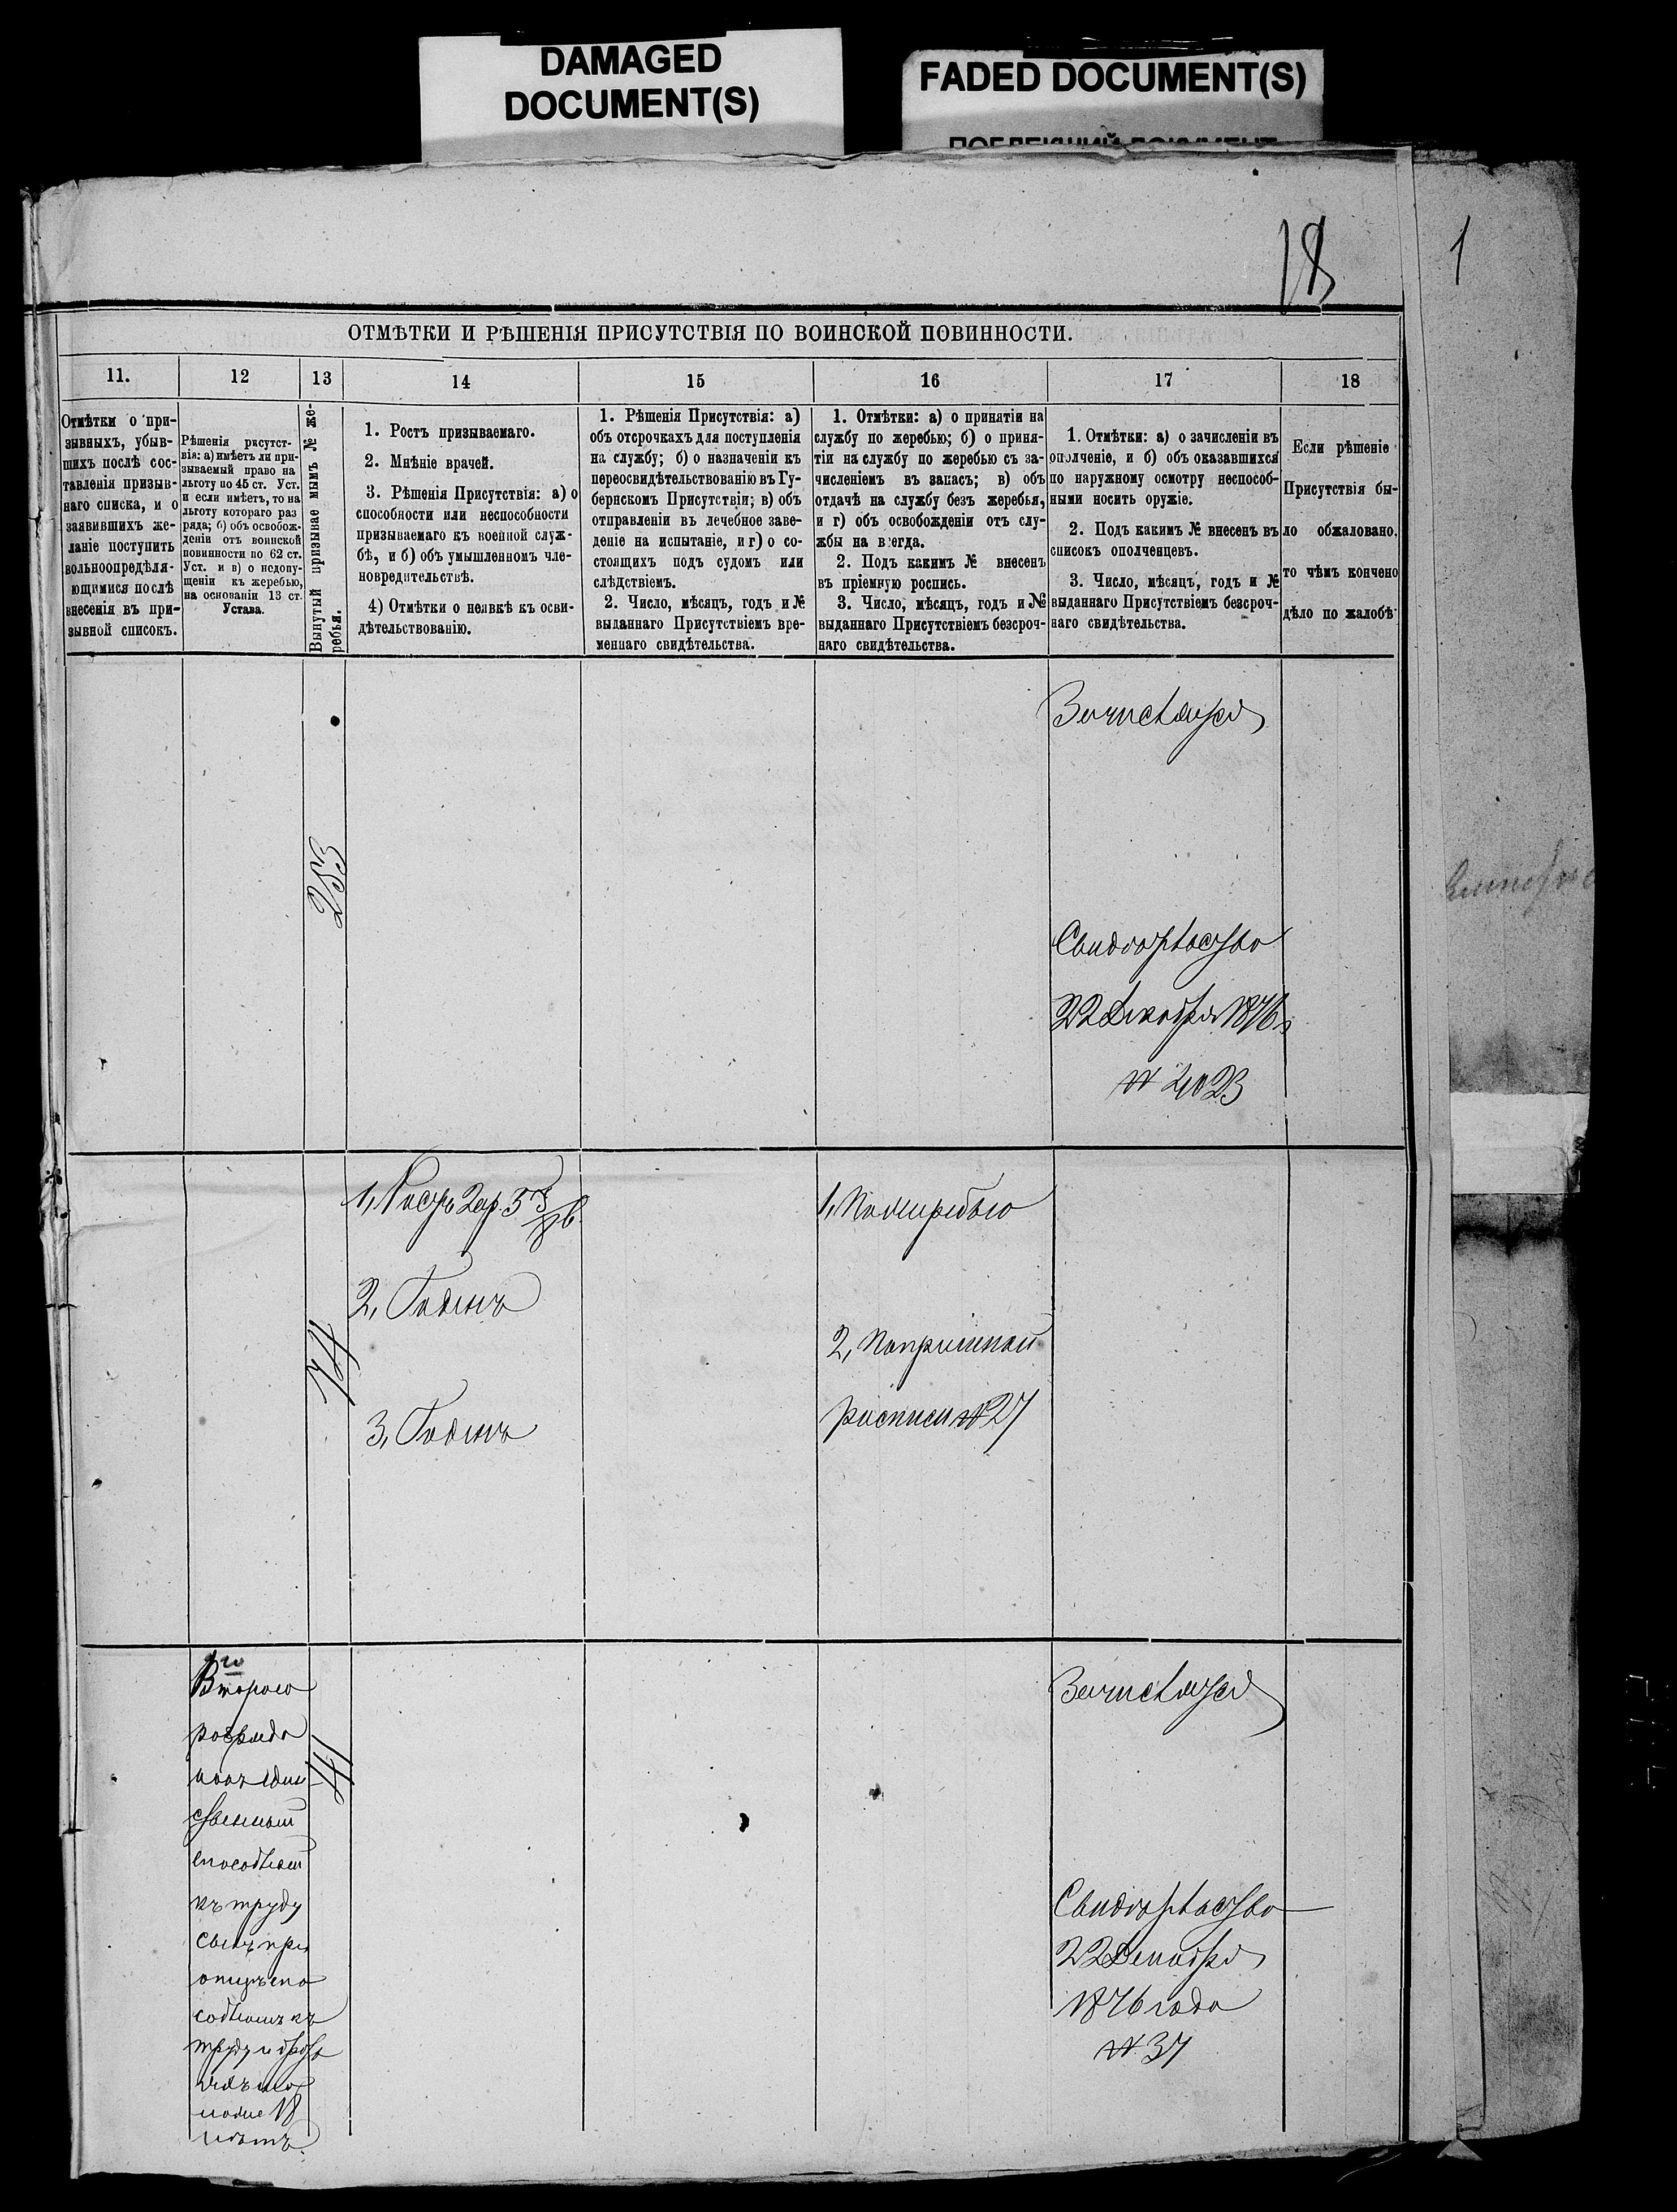 DAMAGED
DOCUMENT(S)
FADED DOCUMENT(S)
18
1
ОТМѢТКИ И РѢШЕНІЯ ПРИСУТСТВІЯ ПО ВОИНСКОЙ ПОВИННОСТИ.
11.
12
13
14
15
16
17
18
Отмѣтки о при-
зывныхъ, убыв-
шихъ послѣ сос-
тавленія призыв-
наго списка, и о
заявившихъ же-
ланіе поступить
вольноопредѣля-
ющимися послѣ
внесенія въ при-
зывной списокъ.
Рѣшенія рисутст-
вія: а) имѣетъ ли при-
зываемый право на
льготу по 45 ст. Уст.
и если имѣетъ, то на
льготу котораго раз
ряда; б) объ освобож-
деніи отъ воинской
повинности по 62 ст.
Уст. и в) о недопу-
щеніи къ жеребью,
на основаніи 13 ст.
Устава.
Вынутый призывае мымъ № же-
ребья.
1. Ростъ призываемаго.
2. Мнѣніе врачей.
3. Рѣшенія Присутствія: а) о
способности или неспособности
призываемаго къ военной служ-
бѣ, и б) объ умышленномъ чле-
новредительствѣ.
4) Отмѣтки о неявкѣ къ осви-
дѣтельствованію.
1. Рѣшенія Присутствія: а)
объ отсрочкахъ для поступленія
на службу; б) о назначеніи къ
переосвидѣтельствованію въ Гу-
бернскомъ Присутствіи; в) объ
отправленіи въ лечебное заве-
деніе на испытаніе, и г) о со-
стоящихъ подъ судомъ или
слѣдствіемъ.
2. Число, мѣсяцъ, годъ и №
выданнаго Присутствіемъ вре-
меннаго свидѣтельства.
1. Отмѣтки: а) о принятіи на
службу по жеребью; б) о приня-
тіи на службу по жеребью съ за-
численіемъ въ запасъ; в) объ
отдачѣ на службу безъ жеребья,
и г) объ освобожденіи отъ слу-
жбы на в егда.
2. Подъ какимъ № внесенъ
въ пріемную роспись.
3. Число, мѣсяцъ, годъ и №
выданнаго Присутствіемъ безсроч-
наго свидѣтельства.
1. Отмѣтки: а) о зачисленіи въ
ополченіе, и б) объ оказавшихся
по наружному осмотру неспособ-
ными носить оружіе.
2. Подъ какимъ № внесенъ въ
списокъ ополченцевъ.
3. Число, мѣсяцъ, годъ и №
выданнаго Присутствіемъ безсроч-
наго свидѣтельства.
Если рѣшеніе
Присутствія бы-
ло обжаловано.
то чѣмъ кончено
дѣло по жалобѣ
253
Зачисляется
Свидѣтельство
22 Декабря 1876 г
№ 4023
74
1, Ростъ 2 ар. 5 3/8 в.
2, Годенъ
3, Годенъ
1, По жеребью
2, По пріемной
росписи № 27
Втораго
разряда
какъ един
ственный
способный
къ труду
сынъ при
отцѣ спо
собномъ къ
труду и братѣ
моложе 18
лѣтъ.
41
Зачисляется
Свидѣтельство
22 Декабря
1876 года
№ 37